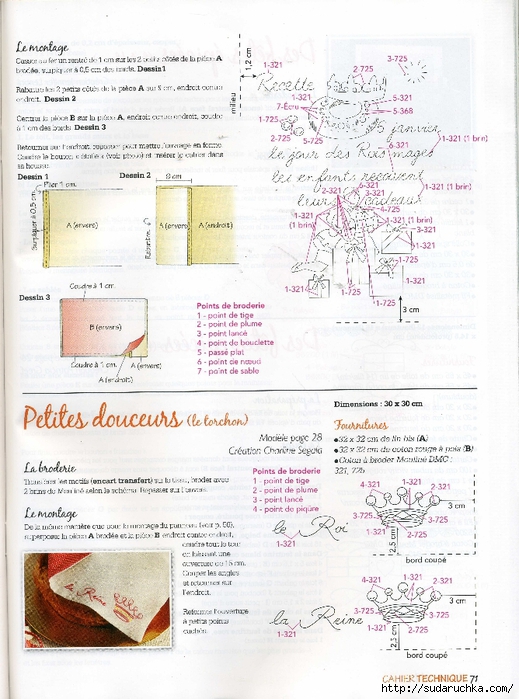 Le montage
rentré de 1 cm sur les 2 petits côtés de la pièce A
brodée, surpiquer à 0,5 cm des bords. Dessin 1
Rabattre les 2 petits côtés de la pièce A sur 8 cm, endroit contre
endroit. Dessin 2
Centrer la pièce B sur la pièce A, endroit contre endroit, coudre
à 1 cm des bords. Dessin 3
Retourner sur l'endroit, repasser pour mettre l'ouvrage en forme.
Coudre le bouton (voir photo) et insérer le cahier dans
sa housse.
Dessin 1
Plier 1 cm.
Surpiquer à 0,5 cm
A (envers)
Dessin 2
8 cm
Rabattre.
A (envers)
A (endroit)
Dessin 3
Coudre à 1 cm
B (envers)
Coudre à 1 cm
A (envers)
A (endroit)
Points de broderie
1 - point de tige
2 - point de plume
3 - point lancé
4 - point de bouclette
5 - passé plat
6 - point de nœud
7 - point de sable
1,2 cm
milieu
1-321
2-725
3-725
Recette
1-321
7-Écru
2-725
5-321
5-368
1-321
1-321
6-321
1-321 (1 brin)
janvier
le jour des Rois mages
les enfants reçoivent
leurs cadeaux
2-725
6-321
3-321
1-321
(1 brin)
1-321
(1 brin)
1-321 (1 brin)
3-321
4-321
1-321
1-321
1-725
1-725
3 cm
Petites douceurs (le torchon)
Modèle page 28
Création Charline Segala
La broderie
Transférer les motifs (encart transfert) sur le tissu, broder avec
2 brins de Mouliné selon le schéma. Repasser sur l'envers.
Le montage
De la même manière que pour le montage du panneau
superposer la pièce A brodée et la pièce B endroit contre endroit,
coudre tout le tour
en laissant une
ouverture de 15 cm.
Couper les angles
et retourner sur
l'endroit.
Refermer l'ouverture
à petits points
cachés.
la Reine
Points de broderie
1 - point de tige
2 - point de plume
3 - point lancé
4 - point de piqûre
Dimensions : 30 x 30 cm
Fournitures
•32 x 32 cm de lin bis (A)
•32 x 32 cm de coton rouge à pois (B)
•Coton à broder Mouliné DMC :
321, 725
le Roi
1-321
1-321
4-321
2-321
3-725
3-725
2-725
3 cm
2,5 cm
bord coupé
la Reine
1-321
4-321
3-321
2-321
3-725
1-321
2-725
3 cm
2,5 cm
bord coupé
CAHIER TECHNIQUE 71
http://sudaruchka.com/